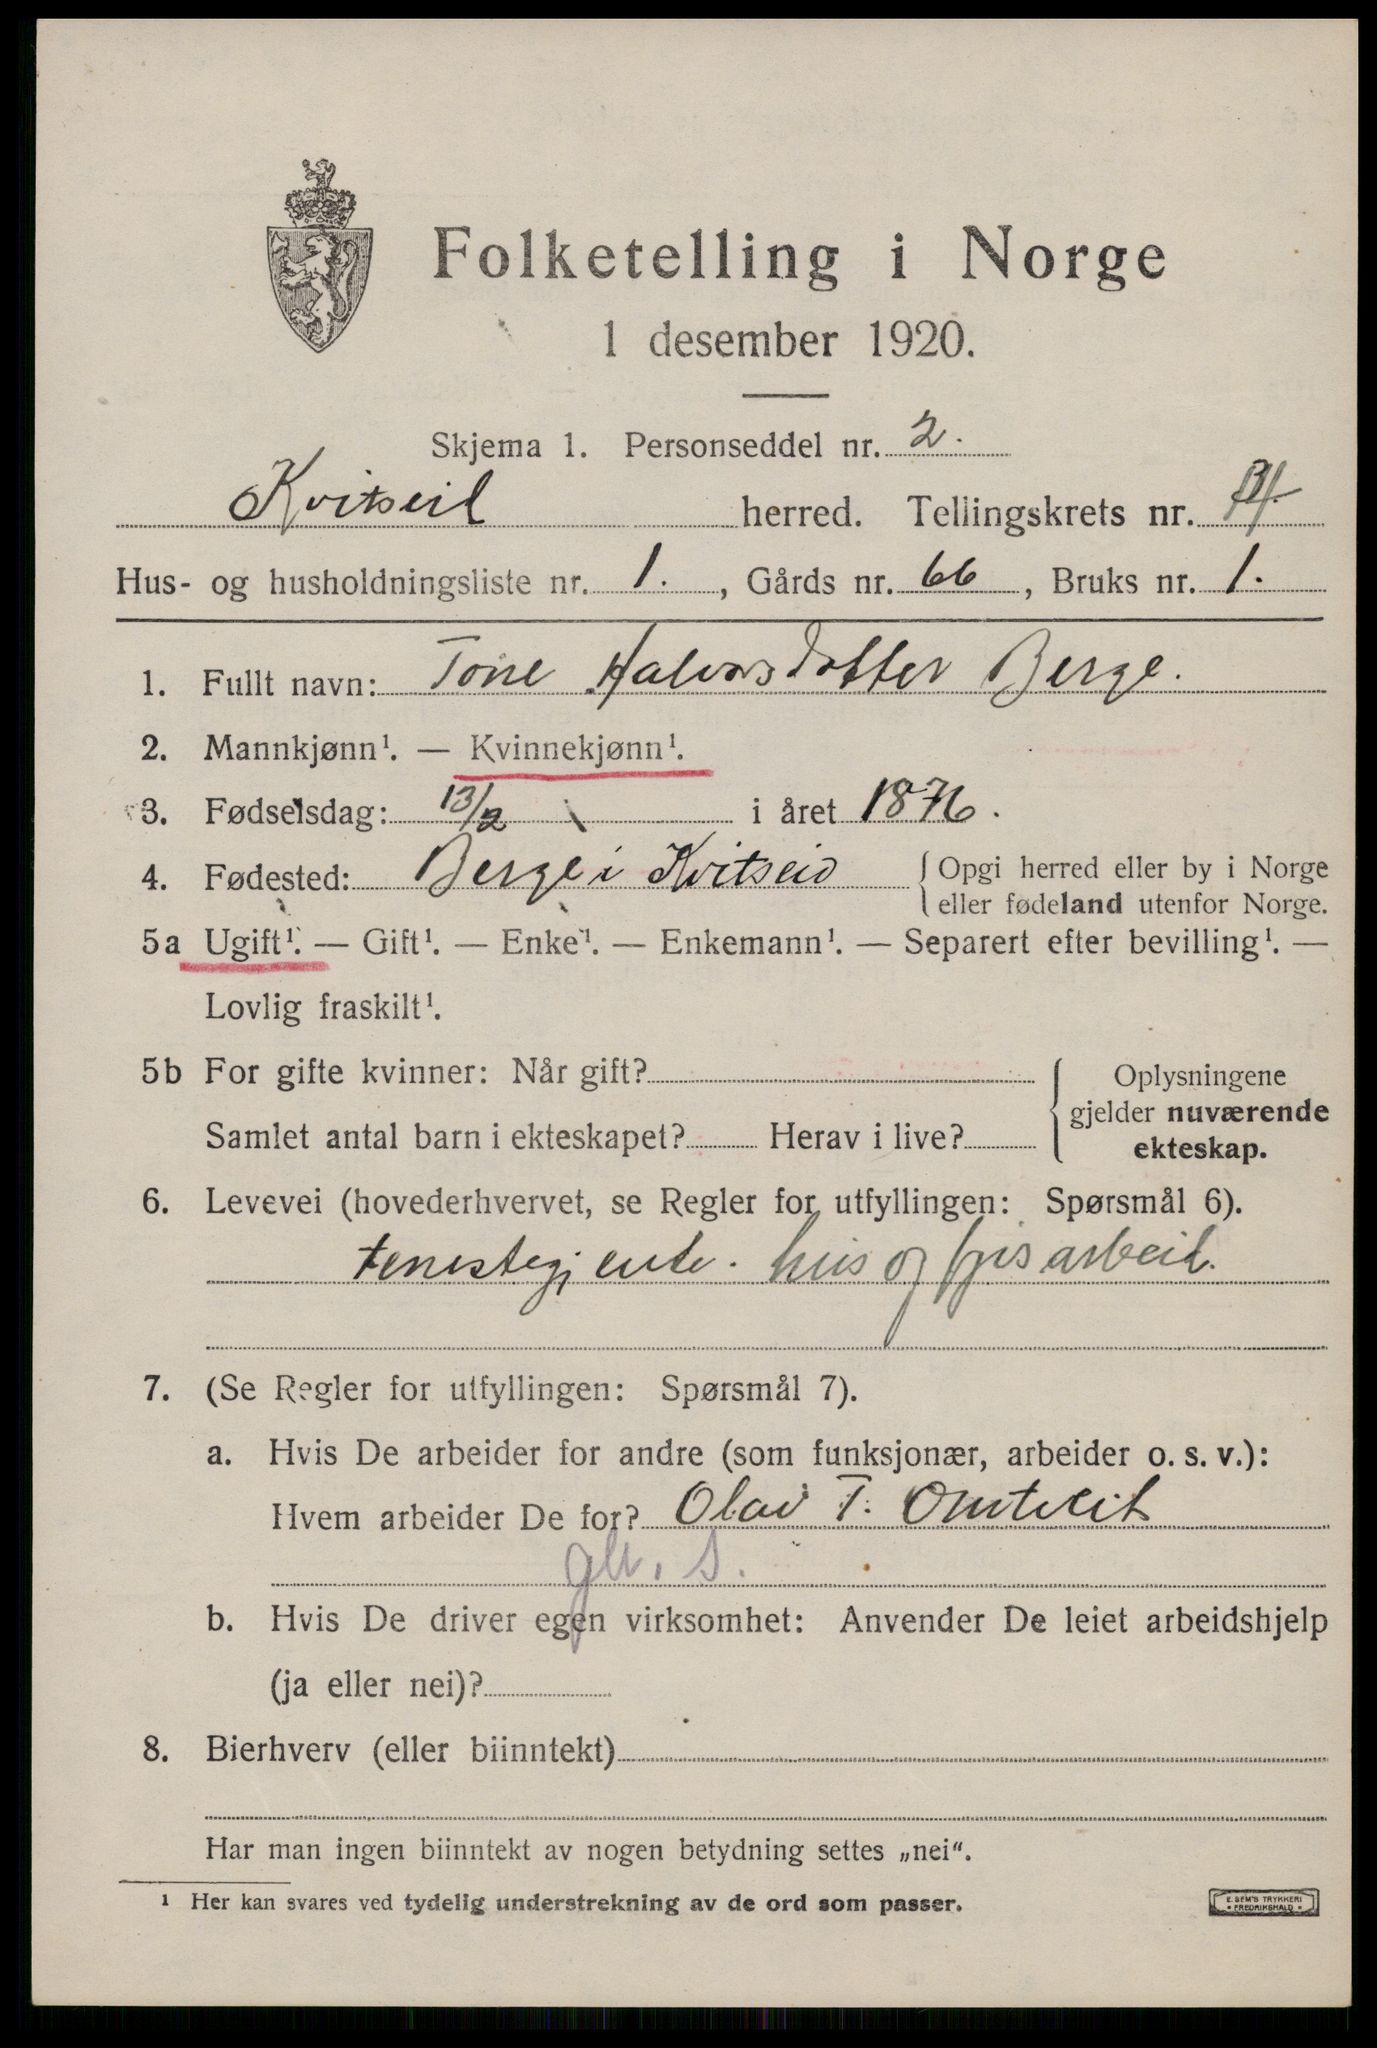 Folketelling i Norge
1 desember 1920.
Skjema 1. Personseddel nr. 2.
Kvitseid herred. Tellingskrets nr.
Hus- og husholdningsliste nr. 1., Gårds nr. 66, Bruks nr. 1.
1. Fullt navn: Tone Halvorsdotter Berge.
2. Mannkjønn¹. — Kvinnekjønn¹.
3. Fødselsdag: 13/2 i året 1876.
4. Fødested: Berge i Kvitseid { Opgi herred eller by i Norge
eller fødeland utenfor Norge.
5a Ugift¹. — Gift¹. — Enke¹. — Enkemann¹. — Separert efter bevilling¹. —
Lovlig fraskilt¹.
5b For gifte kvinner: Når gift? { Oplysningene
gjelder nuværende
Samlet antal barn i ekteskapet? Herav i live? ekteskap.
6. Levevei (hovederhvervet, se Regler for utfyllingen: Spørsmål 6).
tenestegjente. hus og fjøsarbeid.
7. (Se Regler for utfyllingen: Spørsmål 7).
a. Hvis De arbeider for andre (som funksjonær, arbeider o. s. v.):
Hvem arbeider De for? Olav T. Omtveit
b. Hvis De driver egen virksomhet: Anvender De leiet arbeidshjelp
(ja eller nei)?
8. Bierhverv (eller biinntekt)
Har man ingen biinntekt av nogen betydning settes „nei“.
¹ Her kan svares ved tydelig understrekning av de ord som passer.
E. SEM'S TRYKKERI
FREDRIKSHALD